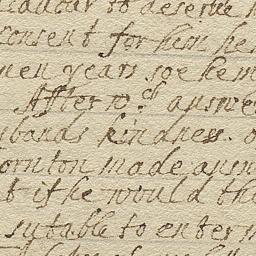 to deserve
consent for him he
men years soe hem
After wch answe
sbands kindness.
ornton made answ
t if he would th
sutable to enter